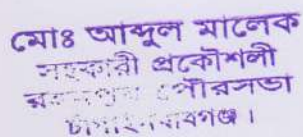 মোঃ আব্দুল মালেক
সহকারী প্রকৌশলী
পৌরসভা
চাঁপাইনবাবগঞ্জ।